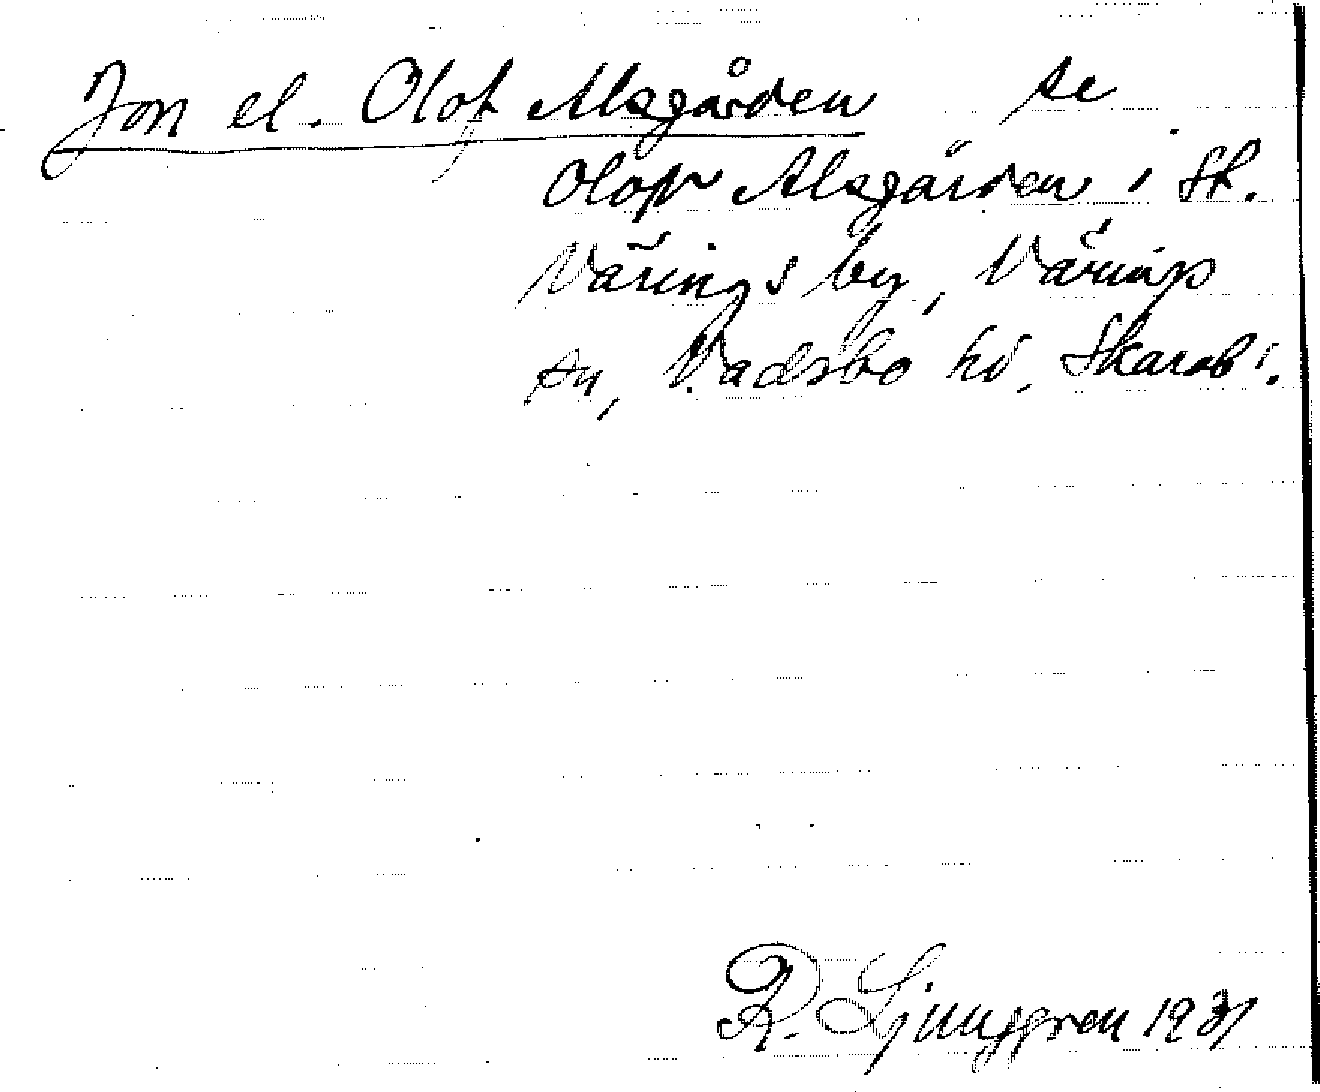 Jon el. Olof Alsgården se
Olof Alsgården i St.
Värings by, Värings
sn, Vadsbo hd, Skarab.l.
R. Ljunggren 1931